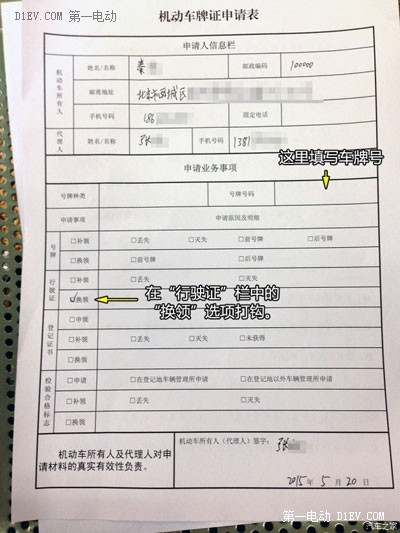 D1EV.COM 第一电动
机动车牌证申请表
申请人信息栏
机动车所有人
姓名/名称 秦 邮政编码 100000
邮寄地址 北京市西城区
手机号码 186 固定电话
代理人 姓名/名称 张 手机号码 1381
这里填写车牌号
申请业务事项
号牌种类 号牌号码
申请事项 申请原因及明细
号牌
□补领 □丢失 □灭失 □前号牌 □后号牌
□换领 □前号牌 □后号牌
行驶证
□补领 □丢失 □灭失
☑换领
在“行驶证”栏中的
“换领”选项打钩。
登记证书
□申领
□补领 □丢失 □灭失 □未获得
□换领
检验合格标志
□申请 □在登记地车辆管理所申请 □在登记地以外车辆管理所申请
□补领 □丢失 □灭失
□换领
机动车所有人及代理人对申
请材料的真实有效性负责。
机动车所有人（代理人）签字：张
2015年 5月 20日
第一电动 D1EV.COM
汽车之家